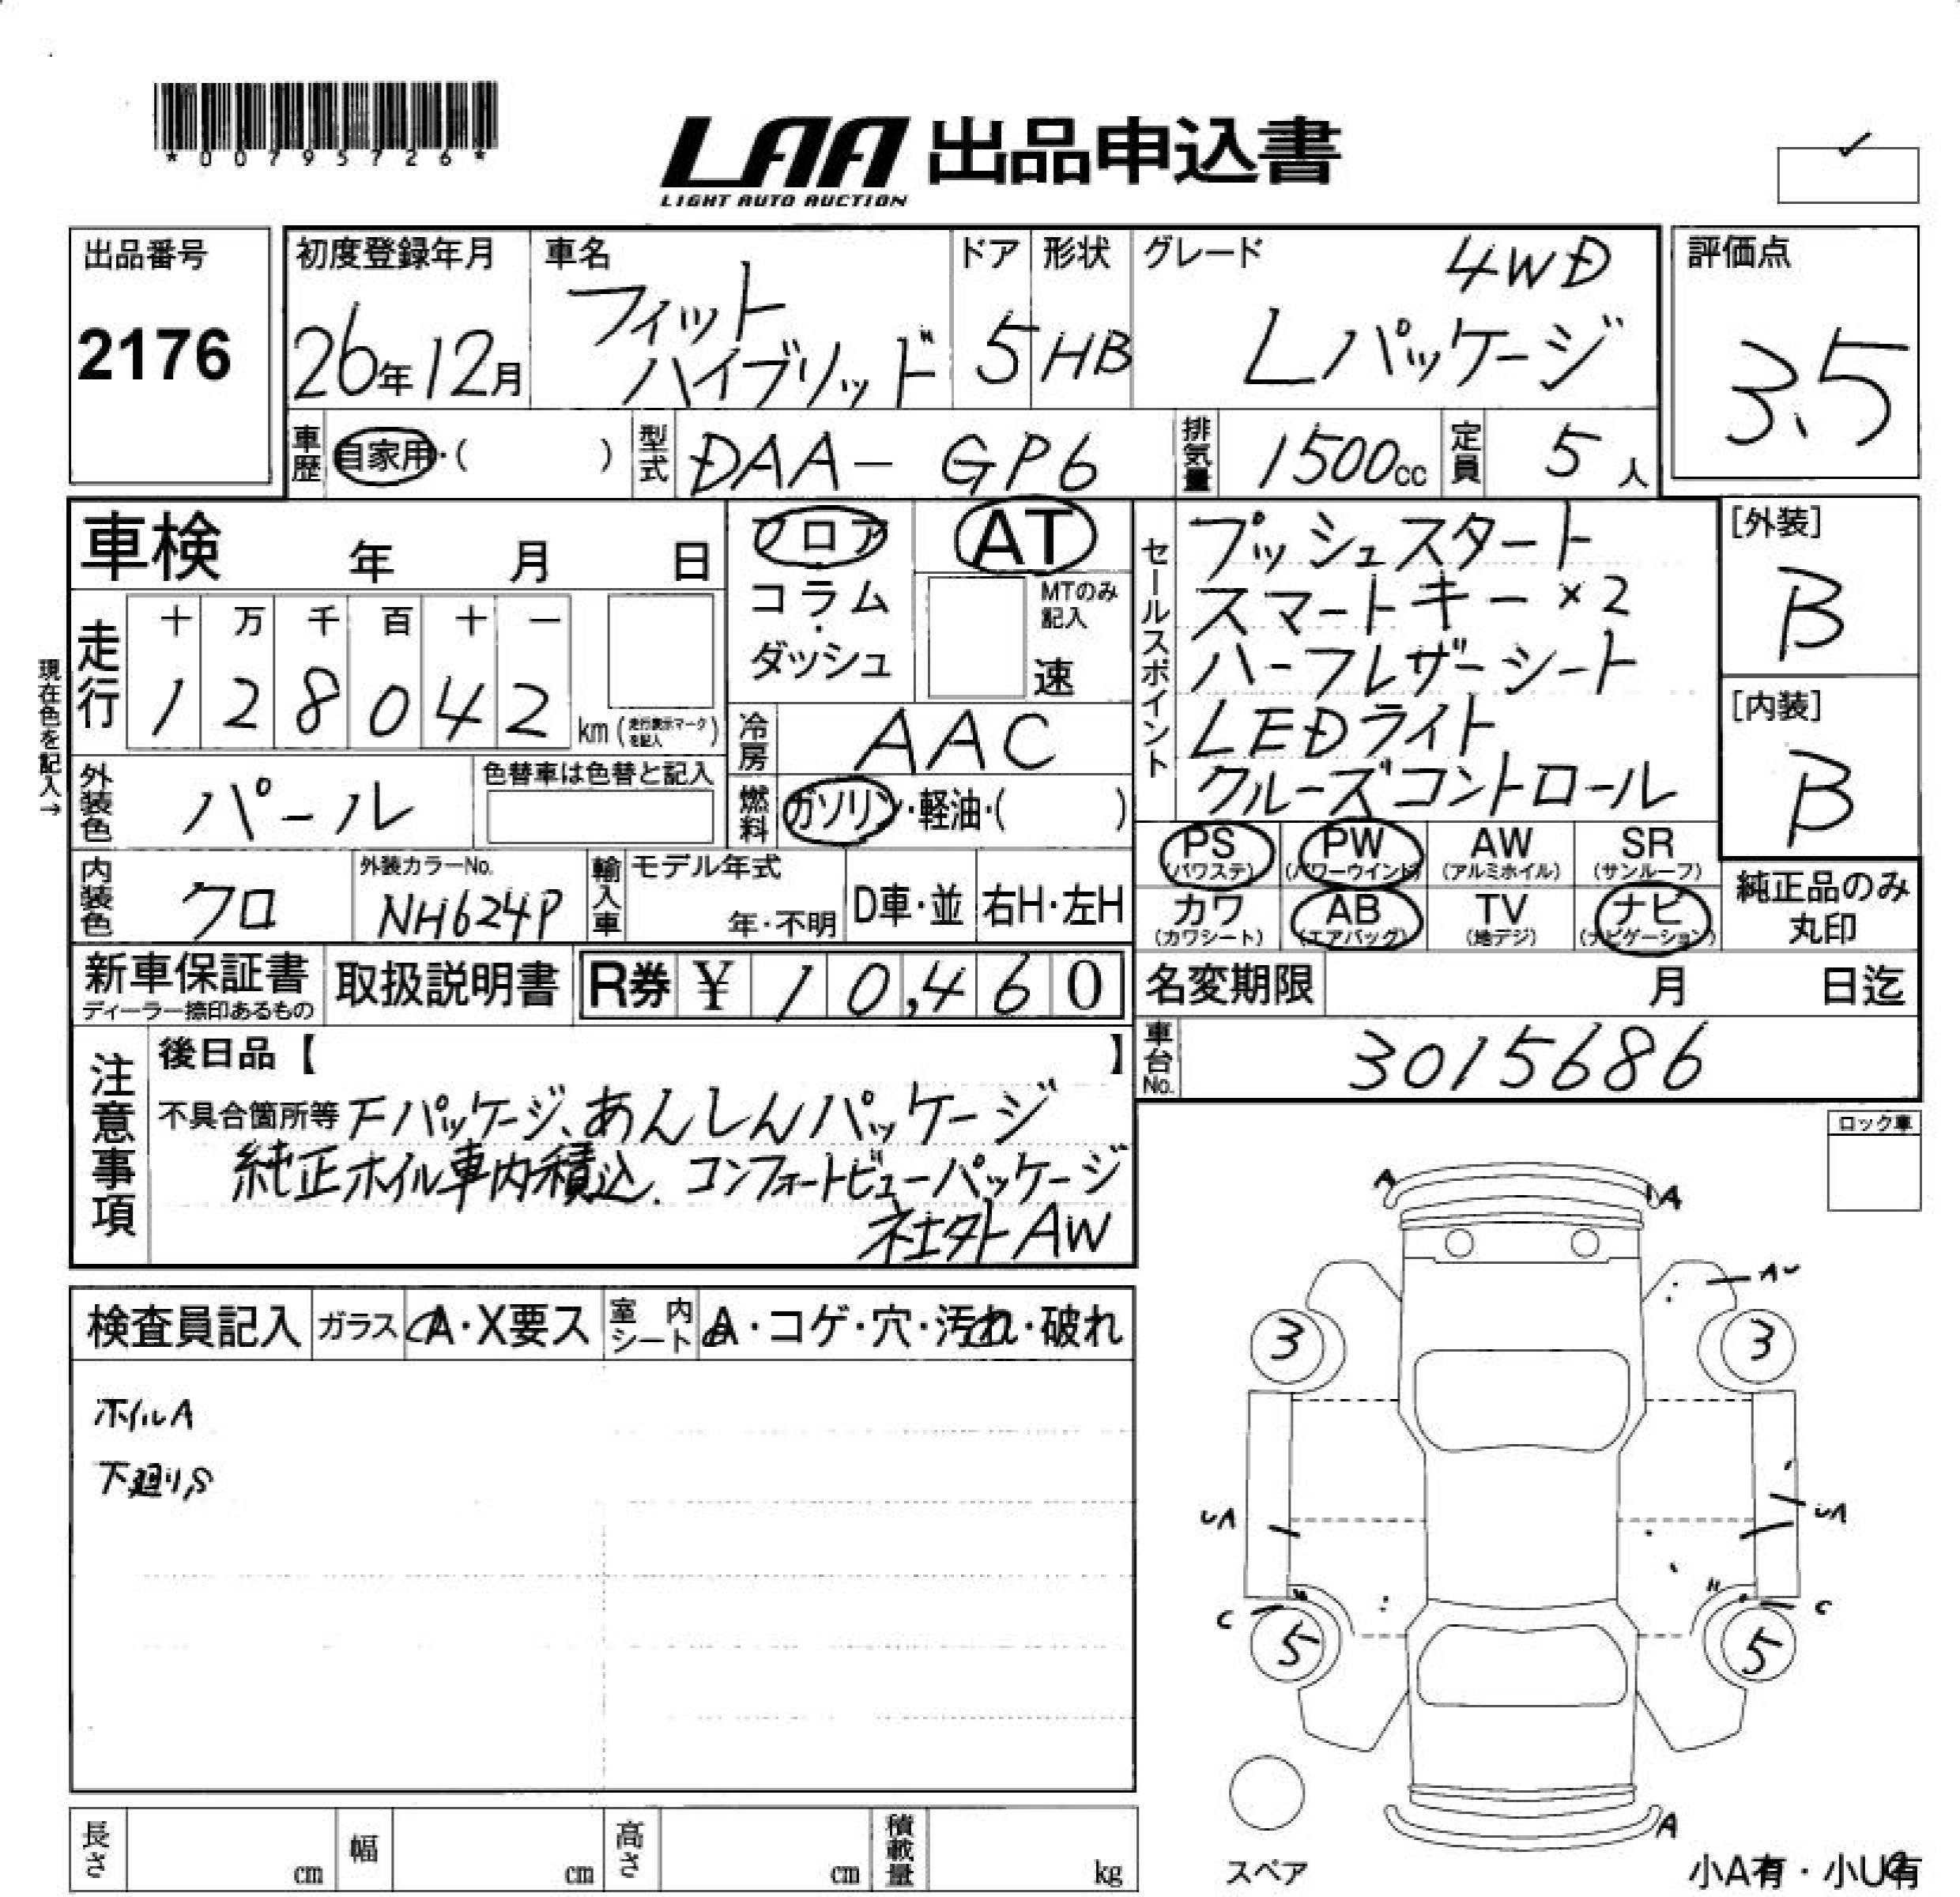 *00795726*
LAA 出品申込書
LIGHT AUTO AUCTION
出品番号
2176
初度登録年月
26年12月
車名
フィット
ハイブリッド
ドア
5
形状
HB
グレード
4WD
Lパッケージ
評価点
3.5
車歴
自家用・( )
型式
DAA- GP6
排気量
1500cc
定員
5人
車検 年 月 日
フロア
コラム
・
ダッシュ
AT
MTのみ
記入
速
セールスポイント
プッシュスタート
スマートキー×2
ハーフレザーシート
LEDライト
クルーズコントロール
[外装]
B
[内装]
B
現在色を記入→
走行
十 万 千 百 十 一
1 2 8 0 4 2
km(走行表示マークを記入)
冷房
AAC
外装色
パール
色替車は色替と記入
燃料
ガソリン・軽油・( )
PS
(パワステ)
PW
(パワーウインド)
AW
(アルミホイル)
SR
(サンルーフ)
カワ
(カワシート)
AB
(エアバッグ)
TV
(地デジ)
ナビ
(ナビゲーション)
純正品のみ
丸印
内装色
クロ
外装カラーNo.
NH624P
輸入車
モデル年式
年・不明
D車・並
右H・左H
新車保証書
ディーラー捺印あるもの
取扱説明書
R券 ¥ 10,460
名変期限 月 日迄
車台No.
3015686
注意事項
後日品【 】
不具合箇所等 Fパッケージ、あんしんパッケージ
純正ホイル車内積込、コンフォートビューパッケージ
社外AW
ロック車
検査員記入
ガラス
A・X要ス
室内
シート
A・コゲ・穴・汚れ・破れ
ホイルA
下廻りS
A
A
AU
3
3
UA
UA
C
C
5
5
A
スペア
小A有・小U有
長さ
cm
幅
cm
高さ
cm
積載量
kg